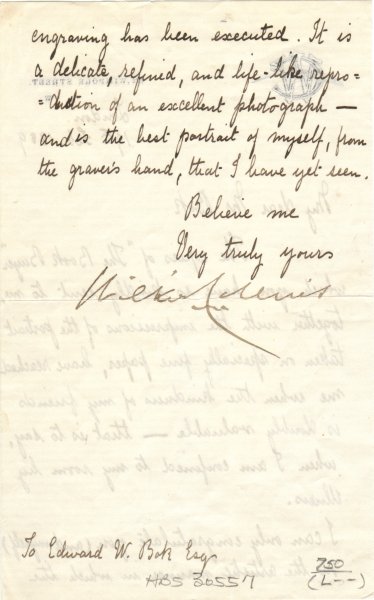 engraving has been executed. It is
a delicate, refined, and life-like repro=
=duction of an excellent photograph —
and is the best portrait of myself, from
the graver's hand, that I have yet seen.
Believe me
Very truly yours
Wilkie Collins
To Edward W. Bok Esq
HBS 30557
750
(L--)